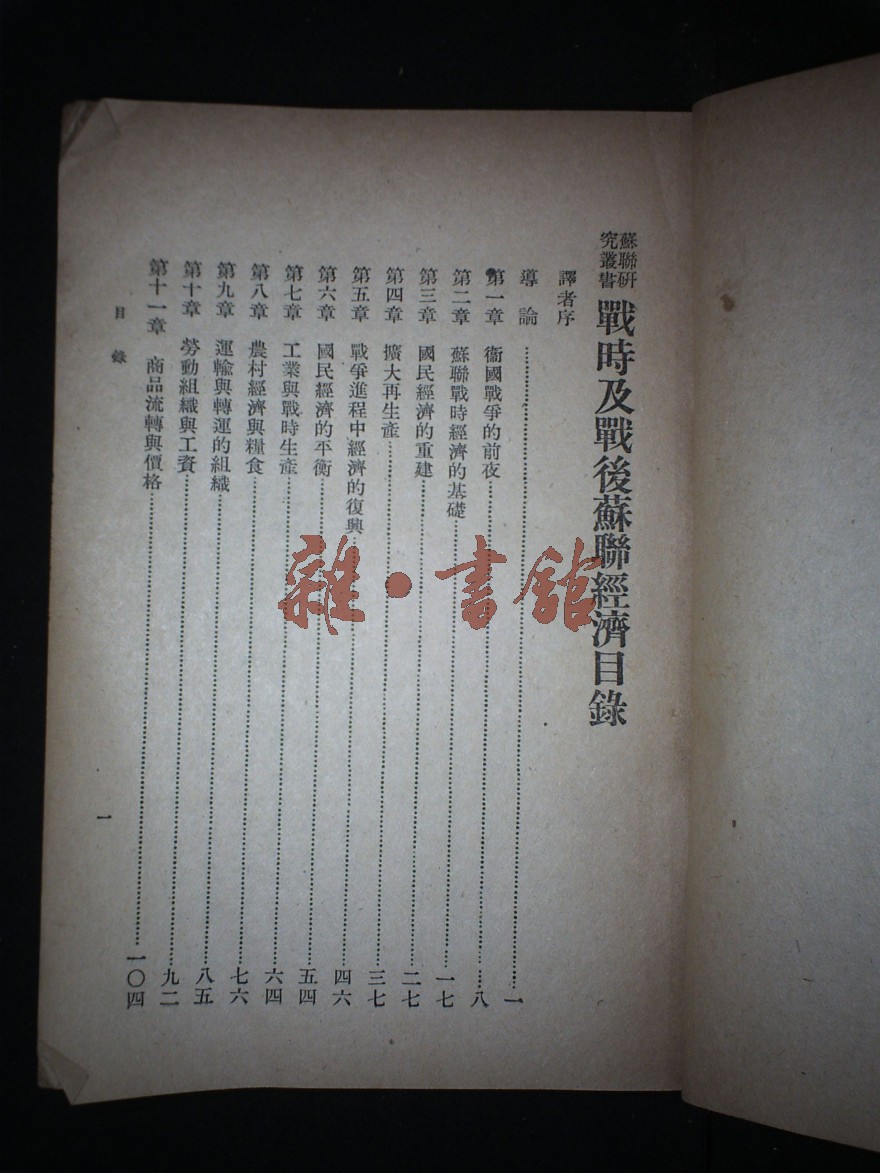 蘇聯研
究叢書
戰時及戰後蘇聯經濟目錄
譯者序
導論……一
第一章 衞國戰爭的前夜……八
第二章 蘇聯戰時經濟的基礎……一七
第三章 國民經濟的重建……二七
第四章 擴大再生產……三七
第五章 戰爭進程中經濟的復興……四六
第六章 國民經濟的平衡……五四
第七章 工業與戰時生產……六四
第八章 農村經濟與糧食……七六
第九章 運輸與轉運的組織……八五
第十章 勞動組織與工資……九二
第十一章 商品流轉與價格……一〇四
目錄
一
雜·書館